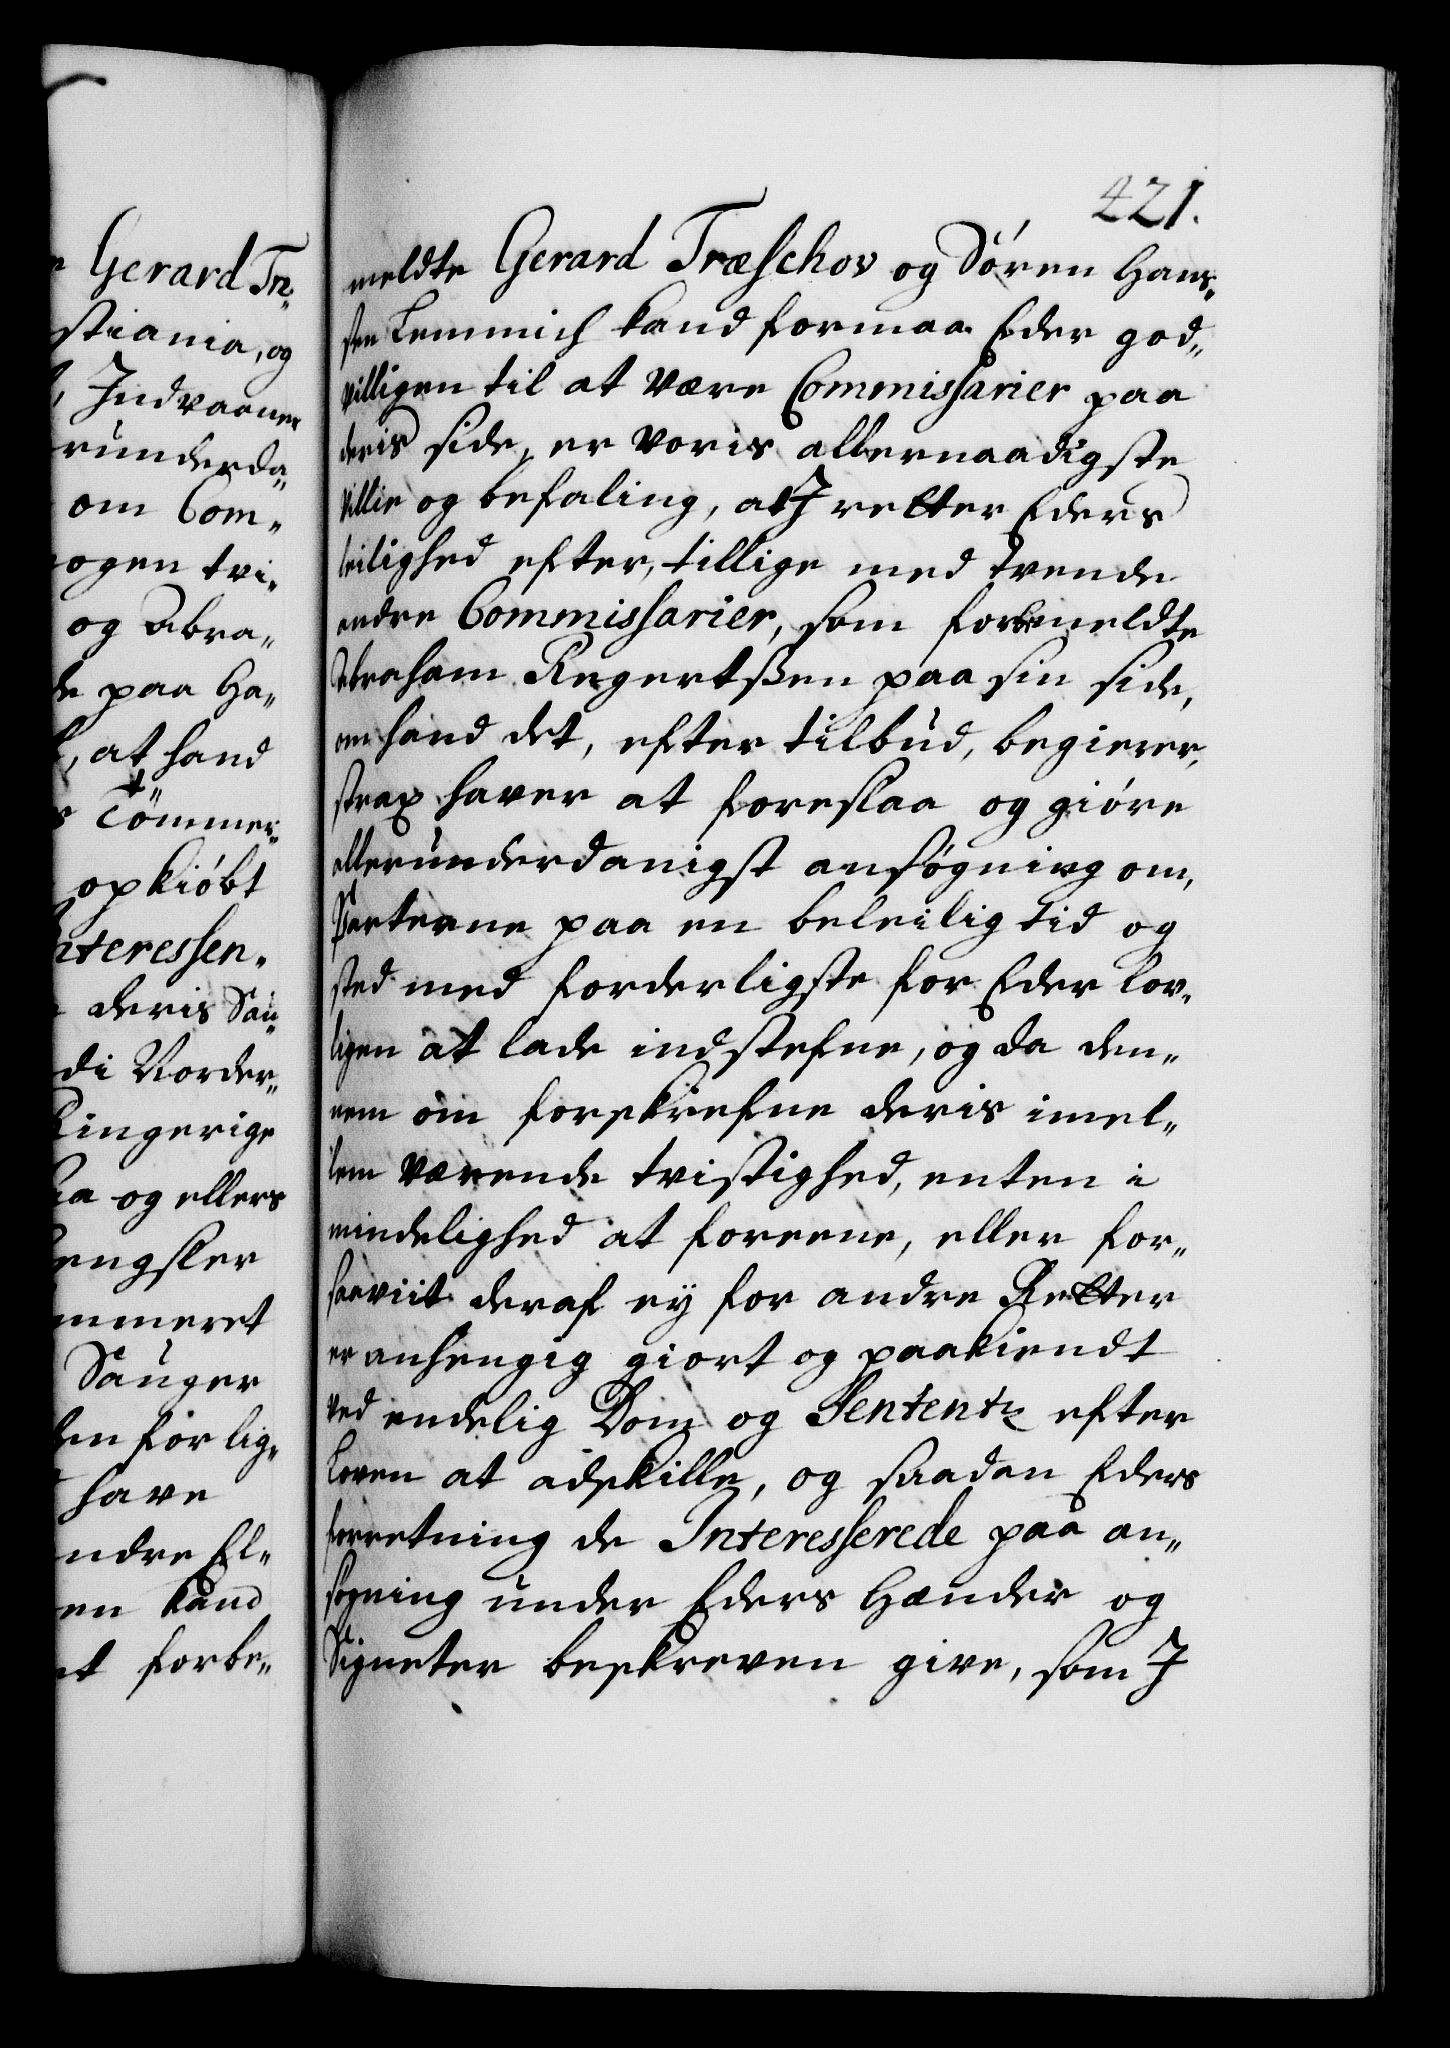 Gerard Træ„
stiania, og
, Indvaaner
runderda„
om Com„
ogen tvi„
og Abra„
de paa Ha„
, at hand
Tömmer„
opkiöbt
nteressen„
deris Sau„
di Norder„
Ringerige
og ellers
engsler
mmeret
Sauger
den for lig„
have
ndre El„
en kand
et forbe„
421.
meldte Gerard Træschov og Sören Hans„
sen Lemmich kand formaa Eder god„
villigen til at være Commissarier paa
deris side, er voris allernaadigste
villie og befaling, at I retter Eders
leilighed efter, tillige med tvende
andre Commissarier, som forbemeldte
Abraham Regertssen paa sin side,
om hand det, efter tilbud, begierer,
strax haver at foreslaa og giöre
allerunderdanigst ansögning om,
Parterne paa en beleilig tid og
sted med forderligste for Eder lov„
ligen at lade indstefne, og da den„
nem om forskrefne deris imel„
lem værende tvistighed, enten i
mindelighed at foreene, eller for„
saaviit deraf ey for andre Retter
er anhengig giort og paakiendt
ved endelig Dom og Sententz efter
Loven at adskille, og saadan Eders
forretning de Interesserede paa an„
sögning under Eders Hænder og
Signeter beskreven give, som I